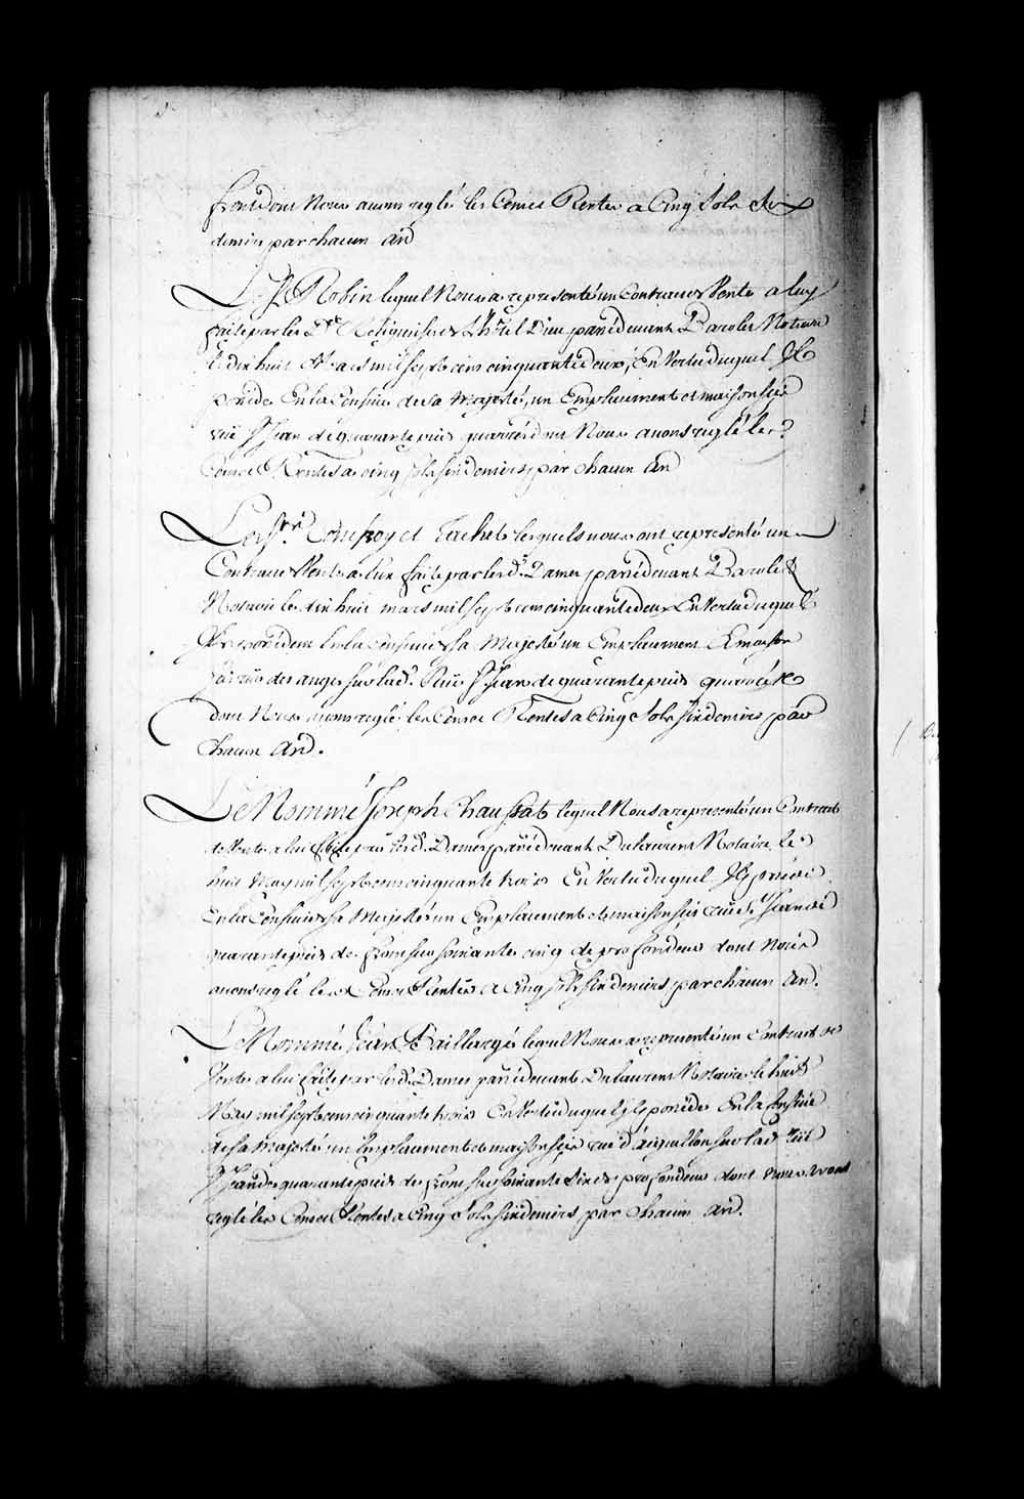 front dont Nous avons reglé les Cens et Rentes a Cinq Sols Six
deniers par chacun an
Le S.r Robin lequel Nous a representé un Contract de Vente a luy
faite par les D.es Religieuses de L'hotel Dieu par devant Barolet Notaire
le dix huit Mars mil sept cens cinquante deux, En Vertu duquel Il
possede En la Censive de sa Majesté, un Emplacement et maison sise
rue S.t Jean de quarante pieds quarrés dont Nous avons reglé les
Cens et Rentes a cinq sols six deniers par chacun an
Les S.rs et lesquels nous ont representé un
Contract de Vente a Eux faite par les d. Dames par devant Barolet
Notaire le dix huit mars mil sept cens cinquante deux En Vertu duquel
Ils possedent En la Censive de sa Majesté un Emplacement Et maison
rue des anges sur lad. Rue S.t Jean de quarante pieds quarrés
dont Nous avons reglé les Cens et Rentes a Cinq Sols six deniers par
Chacun an.
Le Nommé Joseph Chaussat lequel Nous a representé un Contract
de Vente a lui faite par lesd. Dames par devant Dulaurent Notaire le
huit May mil sept cens cinquante trois En Vertu duquel Il possede
En la Censive de sa Majesté un Emplacement et maison sise rue S.t Jean de
quarante pieds de front sur soixante cinq de profondeur dont Nous
avons reglé les Cens et Rentes a Cinq sols six deniers par chacun an.
Le Nommé Jean Baillargé lequel Nous a representé un Contract de
Vente a lui faite par lesd. Dames par devant Dulaurent Notaire le huit
May mil sept cens cinquante trois En Vertu duquel il possede En la Censive
de sa Majesté un Emplacement et maison sise rue d'aiguillon sur lad. rue
S.t Jean de quarante pieds de front sur soixante de profondeur dont nous avons
reglé les Cens et Rentes a Cinq Sols six deniers par chacun an.